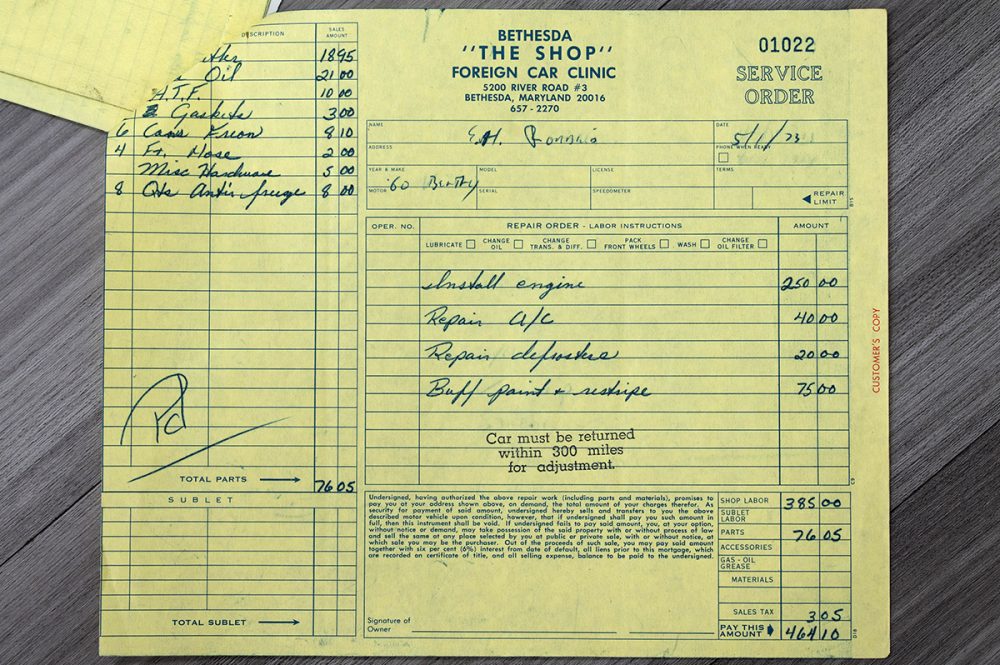 BETHESDA
"THE SHOP"
FOREIGN CAR CLINIC
5200 RIVER ROAD #3
BETHESDA, MARYLAND 20016
657 - 2270
01022
SERVICE
ORDER
NAME
E.H.
DATE
5/1/73
ADDRESS
PHONE WHEN READY
YEAR & MAKE
MODEL
LICENSE
TERMS
'60 Bentley
MOTOR
SERIAL
SPEEDOMETER
REPAIR
LIMIT
B15
DESCRIPTION
SALES
AMOUNT
18 95
Oil 21 00
A.T.F. 10 00
2 Gaskets 3 00
6 Cans Freon 8 10
4 Ft. Hose 2 00
Misc Hardware 5 00
8 Qts Antifreeze 8 00
Pd
TOTAL PARTS
76 05
SUBLET
TOTAL SUBLET
OPER. NO.
REPAIR ORDER - LABOR INSTRUCTIONS
AMOUNT
LUBRICATE
CHANGE
OIL
CHANGE
TRANS. & DIFF.
PACK
FRONT WHEELS
WASH
CHANGE
OIL FILTER
Install engine 250 00
Repair A/C 40 00
Repair defrosters 20 00
Buff paint + restripe 75 00
Car must be returned
within 300 miles
for adjustment.
CUSTOMER'S COPY
Undersigned, having authorized the above repair work (including parts and materials), promises to
pay you at your address shown above, on demand, the total amount of your charges therefor. As
security for payment of said amount, undersigned hereby sells and transfers to you the above
described motor vehicle upon condition, however, that if undersigned shall pay you said amount in
full, then this instrument shall be void. If undersigned fails to pay said amount, you, at your option,
without notice or demand, may take possession of the said property with or without process of law
and sell the same at any place selected by you at public or private sale, with or without notice, at
which sale you may be the purchaser. Out of the proceeds of such sale, you may pay said amount
together with six per cent (6%) interest from date of default, all liens prior to this mortgage, which
are recorded on certificate of title, and all selling expense, balance to be paid to the undersigned.
Signature of
Owner
SHOP LABOR 385 00
SUBLET
LABOR
PARTS 76 05
ACCESSORIES
GAS - OIL
GREASE
MATERIALS
SALES TAX 3 05
PAY THIS
AMOUNT 464 10